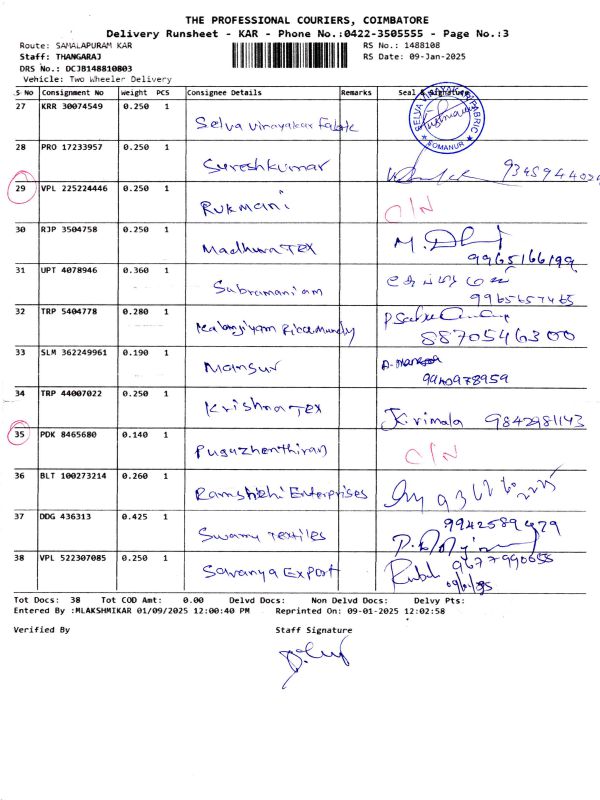 THE PROFESSIONAL COURIERS, COIMBATORE
Delivery Runsheet - KAR - Phone No.:0422-3505555 - Page No.:3
Route: SAMALAPURAM KAR RS No.: 1488108
Staff: THANGARAJ RS Date: 09-Jan-2025
DRS No.: DCJB148810803
Vehicle: Two Wheeler Delivery
S No Consignment No Weight PCS Consignee Details Remarks Seal & Signature
SELVA VINAYAKAR FABRIC
SOMANUR
27 KRR 30074549 0.250 1 Selva Vinayakar Fabric
28 PRO 17233957 0.250 1 Sureshkumar
29 VPL 225224446 0.250 1 Rukmani C/N
30 RJP 3504758 0.250 1 Madhura Tex M.
9965166199
31 UPT 4078946 0.360 1 Subramaniam
9965657465
32 TRP 5404778 0.280 1
8870546300
33 SLM 362249961 0.190 1 Mansur
9940978959
34 TRP 44007022 0.250 1 Krishna Tex 9842981143
35 PDK 8465680 0.140 1 Puguzhenthiran C/N
36 BLT 100273214 0.260 1 Enterprises
37 DDG 436313 0.425 1 Swamy Textiles
38 VPL 522307085 0.250 1 Savanya Export 9677990655
Tot Docs: 38 Tot COD Amt: 0.00 Delvd Docs: Non Delvd Docs: Delvy Pts:
Entered By :MLAKSHMIKAR 01/09/2025 12:00:40 PM Reprinted On: 09-01-2025 12:02:58
Verified By Staff Signature